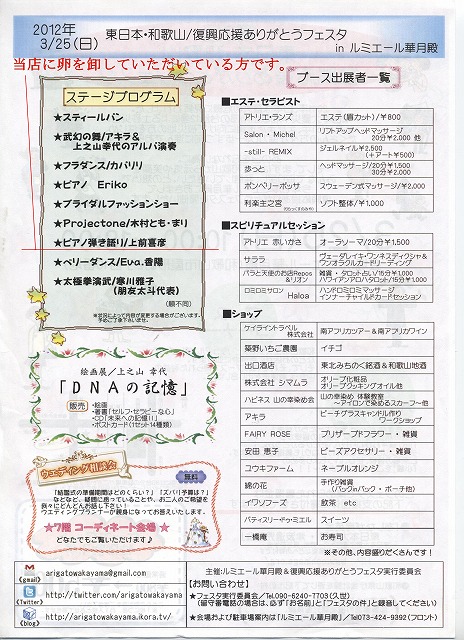 2012年
3/25(日)
東日本・和歌山/復興応援ありがとうフェスタ
in ルミエール華月殿
当店に卵を卸していただいている方です。
ステージプログラム
★スティールパン
★武幻の舞/アキラ&
上之山幸代のアルパ演奏
★フラダンス/カパリリ
★ピアノ Eriko
★ブライダルファッションショー
★Projectone/木村とも・まり
★ピアノ弾き語り/上前喜彦
★ベリーダンス/Eva.香陽
★太極拳演武/寒川雅子
(朋友太斗代表)
(順不同)
※状況によって内容が変更する場合がございます。
予めご了承下さいませ。
絵画展/上之山 幸代
「DNAの記憶」
販売
・絵画
・著書「セルフ・セラピーな心」
・CD「未来への記憶Ⅱ」
・ポストカード(1セット14種類)
ウェディング相談会
無料
「結婚式の準備期間はどのくらい?」「ズバリ予算は?」
などなど、疑問に思っていることや、お二人のご希望を
我々にどんどんお話し下さい!
ウエディングプランナーが親身になってお答えいたします。
★7階 コーディネート会場 ★
どなたでもご覧いただけます♪
(gmail)
arigatowakayama@gmail.com
(Twitter)
http://twitter.com/arigatowakayama
(blog)
http://arigatowakayama.ikora.tv/
ブース出展者一覧
■エステ・セラピスト
アトリエ・ランズ エステ(眉カット)/¥800
Salon・Michel リフトアップヘッドマッサージ
20分¥2.000 他
-still- REMIX ジェルネイル¥2.500
(+アート¥500)
歩っと ヘッドマッサージ/20分¥1.500
30分¥2.000
ボンベリーボッサ スウェーデン式マッサージ/¥2.000
利楽主之宮 ソフト整体/¥1.000
■スピリチュアルセッション
アトリエ 赤いかさ オーラソーマ/20分¥1,500
サララ ヴェーダレイキ・ワンネスディクシャ&
ワンオラクルカードリーディング
バラと天使のお店Repos
&リオン
雑貨 ・タロット占い/15分¥1,000
ハワイアンアロハタロット/15分¥1.000
ロミロサロン
Haloa
ハンドロミロミマッサージ
インナーチャイルドカードセッション
■ショップ
ケイライントラベル
株式会社
南アフリカツアー&南アフリカワイン
築野いちご農園 イチゴ
出口酒店 東北みちのく銘酒&和歌山地酒
株式会社 シマムラ オリーブ化粧品
オリーブクッキングオイル他
ハピネス 山の幸染め会 山の幸染め 体験教室
~アイロンで染めるスカーフ~他
アキラ ビーチグラスキャンドル作り
ワークショップ
FAIRY ROSE プリザーブドフラワー ・ 雑貨
安田 恵子 ビーズアクセサリー ・ 雑貨
ユウキファーム ネーブルオレンジ
綿の花 手作り雑貨
(バックinバック ・ポーチ他)
イワソフーズ 飲茶 etc
パティスリー・ドゥ・ミエル スイーツ
一橋庵 お寿司
※その他、内容盛りだくさんです!
主催:ルミエール華月殿&復興応援ありがとうフェスタ実行委員会
【お問い合わせ】
★フェスタ実行委員会/Tel090-6240-7703(久世)
(留守番電話の場合は、必ず「お名前」と「フェスタの件」と録音してください)
★会場および駐車場案内は「ルミエール華月殿」/Tel073-424-9392(フロント)